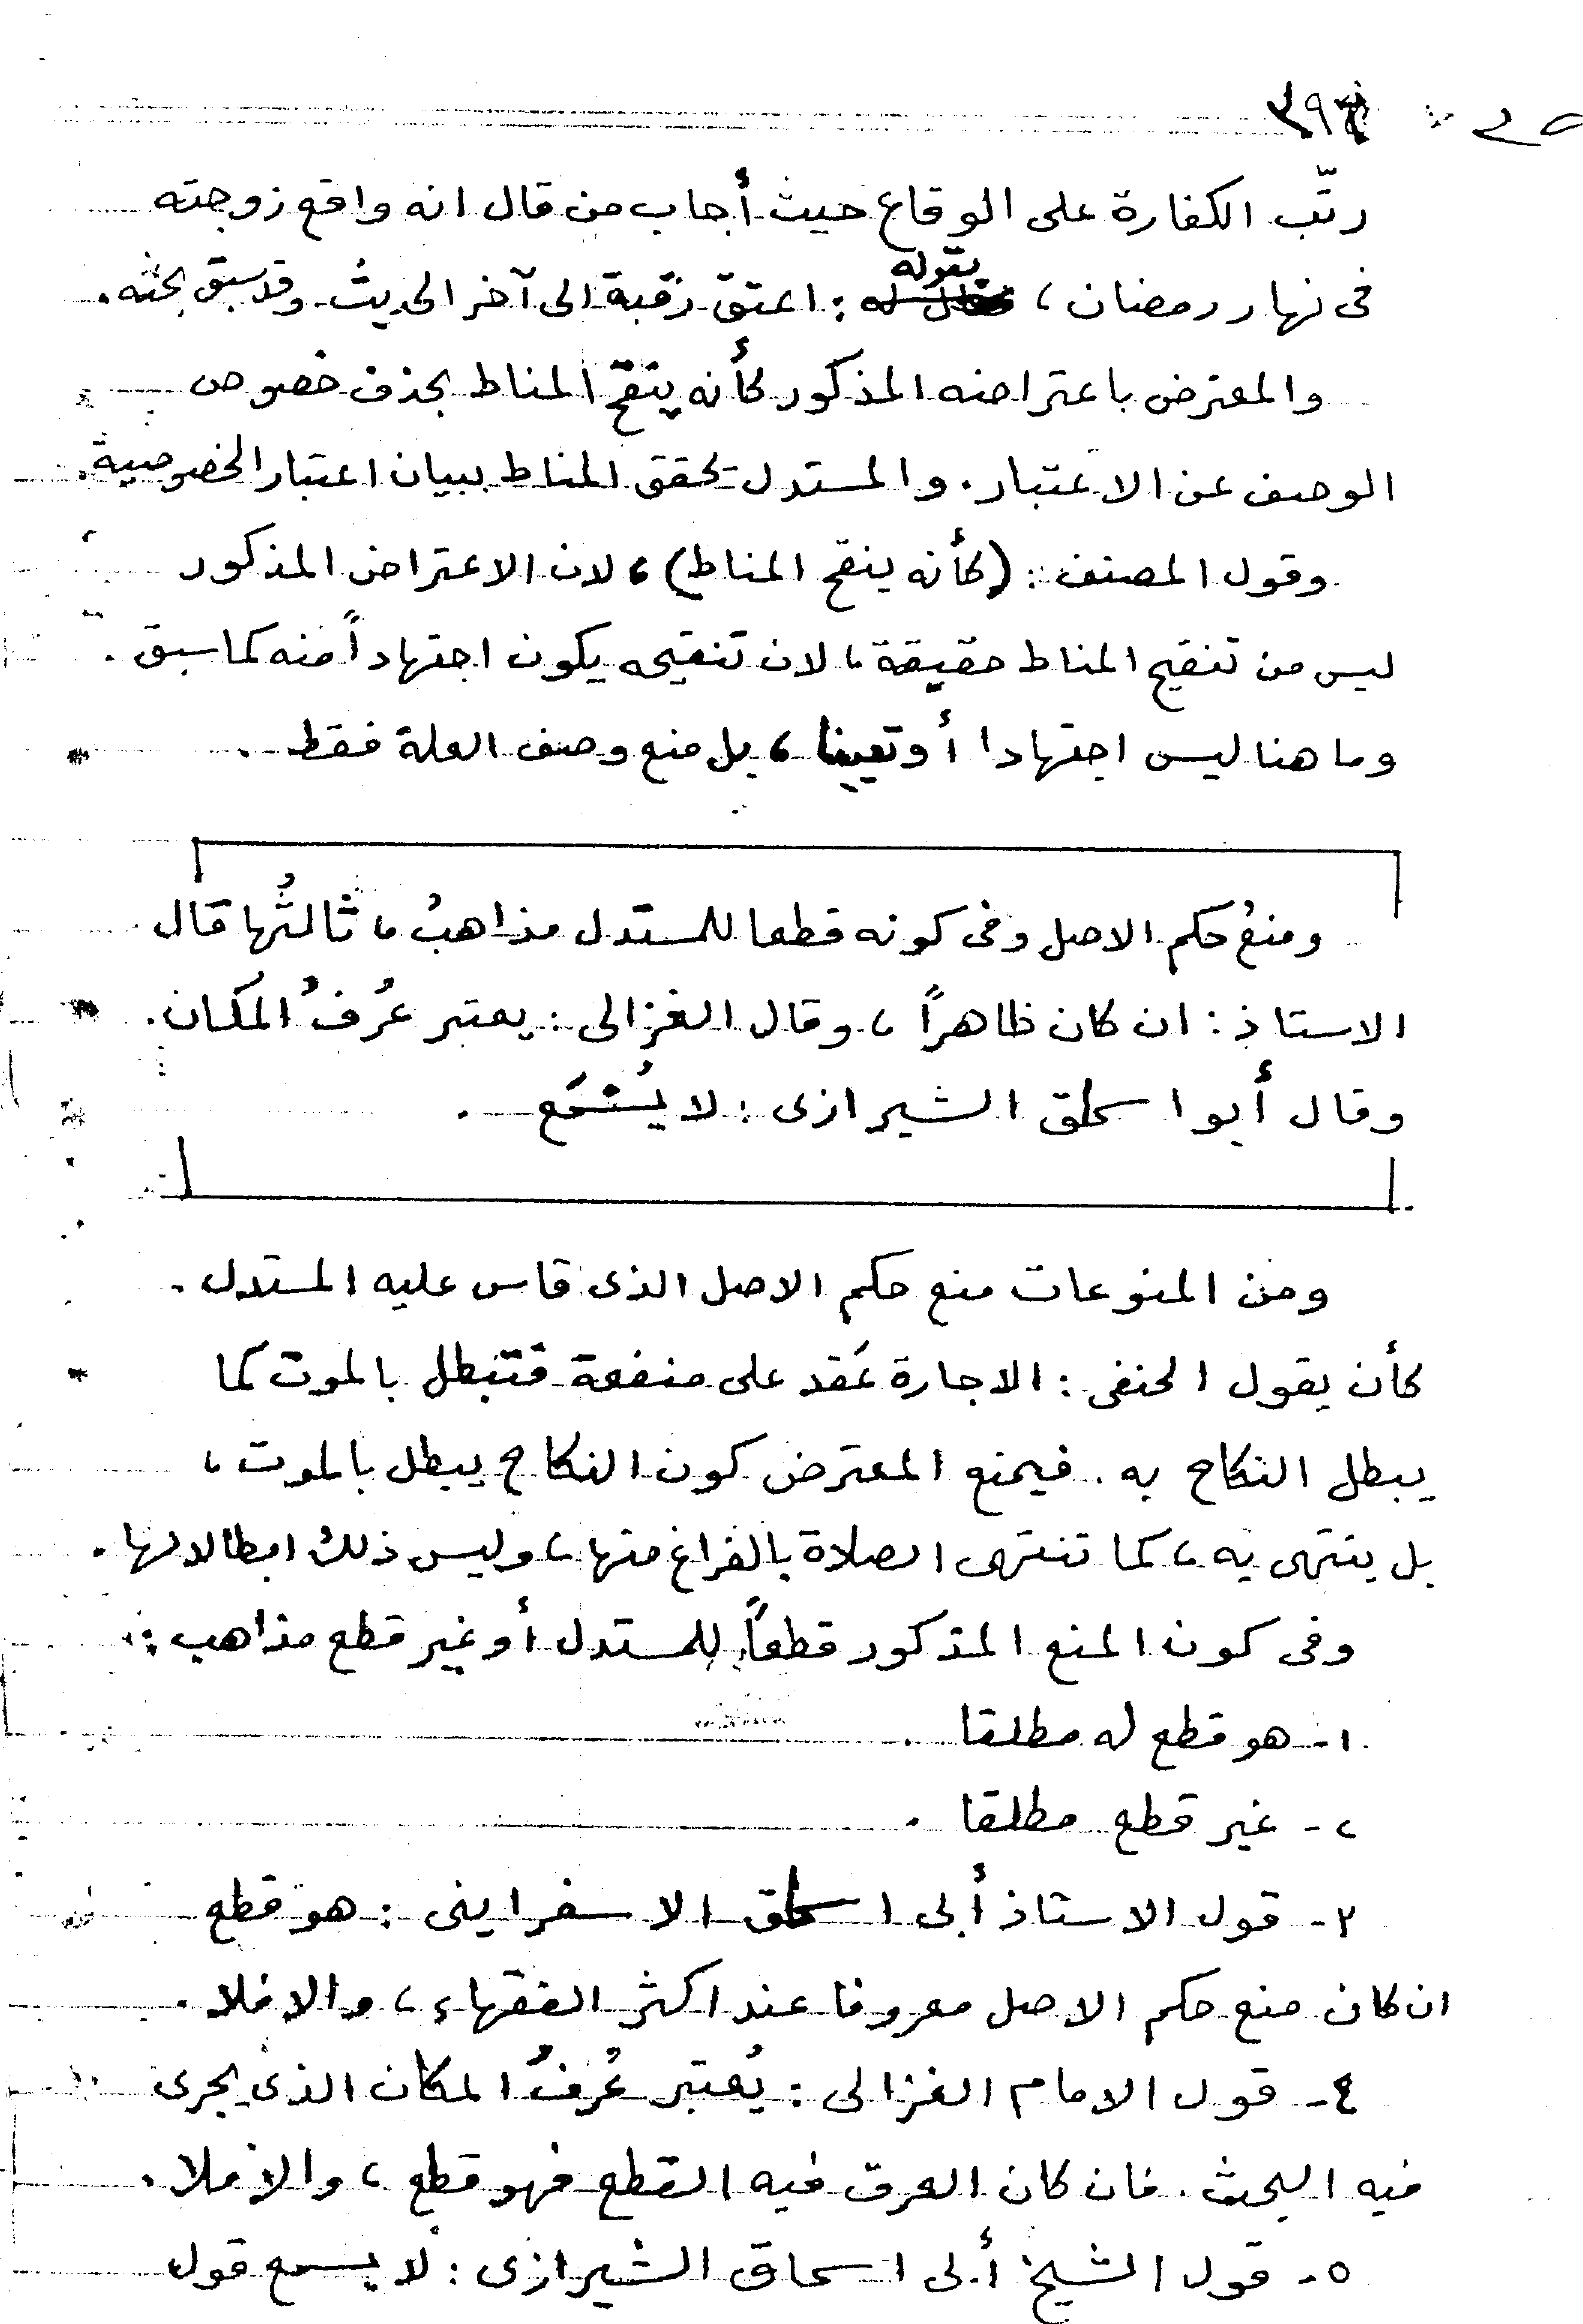 رتّب الكفارة على الوقاع حيث أجاب من قال انه واقع زوجته
فى نهار رمضان ، بقوله : اعتق رقبة الى آخر الحديث وقد سبق بحثه .
والمعترض باعتراضه المذكور كأنه ينقح المناط بحذف خصوص
الوصف عن الاعتبار . والمستدل يحقق المناط ببيان اعتبار الخصوصية .
وقول المصنف : (كأنه ينقح المناط) ، لان الاعتراض المذكور
ليس من تنقيح المناط حقيقة ، لان تنقيحه يكون اجتهاداً منه كما سبق .
وما هنا ليس اجتهادا أو تعيينا ، بل منع وصف العلة فقط .
ومنعُ حكم الاصل وفى كونه قطعا للمستدل مذاهبُ ، ثالثُها قال
الاستاذ : ان كان ظاهراً ، وقال الغزالى : يعتبر عُرفُ المكان .
وقال أبوا سحٰق الشيرازى : لا يُسْمَع .
ومن المنوعات منع حكم الاصل الذى قاس عليه المستدل .
كأن يقول الحنفى : الاجارة عَقد على منفعة فتبطل بالموت كما
يبطل النكاح به . فيمنع المعترض كون النكاح يبطل بالموت ،
بل ينتهى به ، كما تنتهى الصلاة بالفراغ منها ، وليس ذلك ابطالا لها .
وفى كون المنع المذكور قطعاً للمستدل أو غير قطع مذاهب :
١ - هو قطع له مطلقا .
٢ - غير قطع مطلقا .
٣ - قول الاستاذ أبى اسحٰق الاسفراينى : هو قطع
ان كان منع حكم الاصل معروفا عند اكثر الفقهاء ، والا فلا .
٤ - قول الامام الغزالى : يُعتبر عُرفُ المكان الذى يجرى
فيه البحث . فان كان العرف فيه القطع فهو قطع ، والا فلا .
٥ - قول الشيخ أبى اسحاق الشيرازى : لا يسمع قول